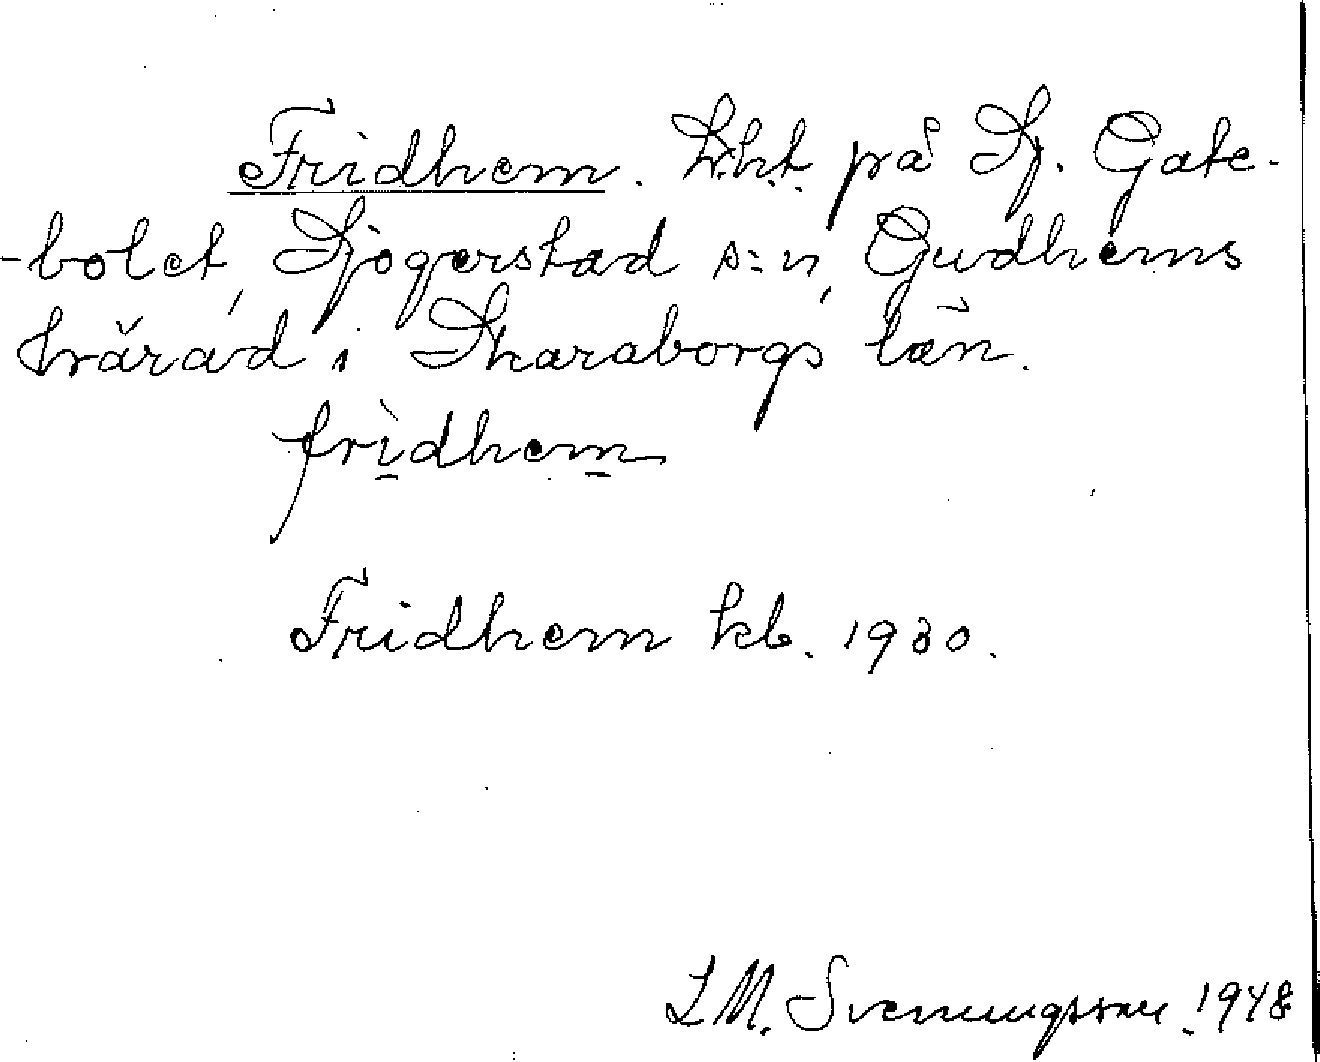 Fridhem. Lht på Sj. Gate-
-bolet, Sjogerstad s:n, Gudhems
härad i Skaraborgs län.
fridhem
Fridhem kb. 1930.
L M. Svenungsson 1948